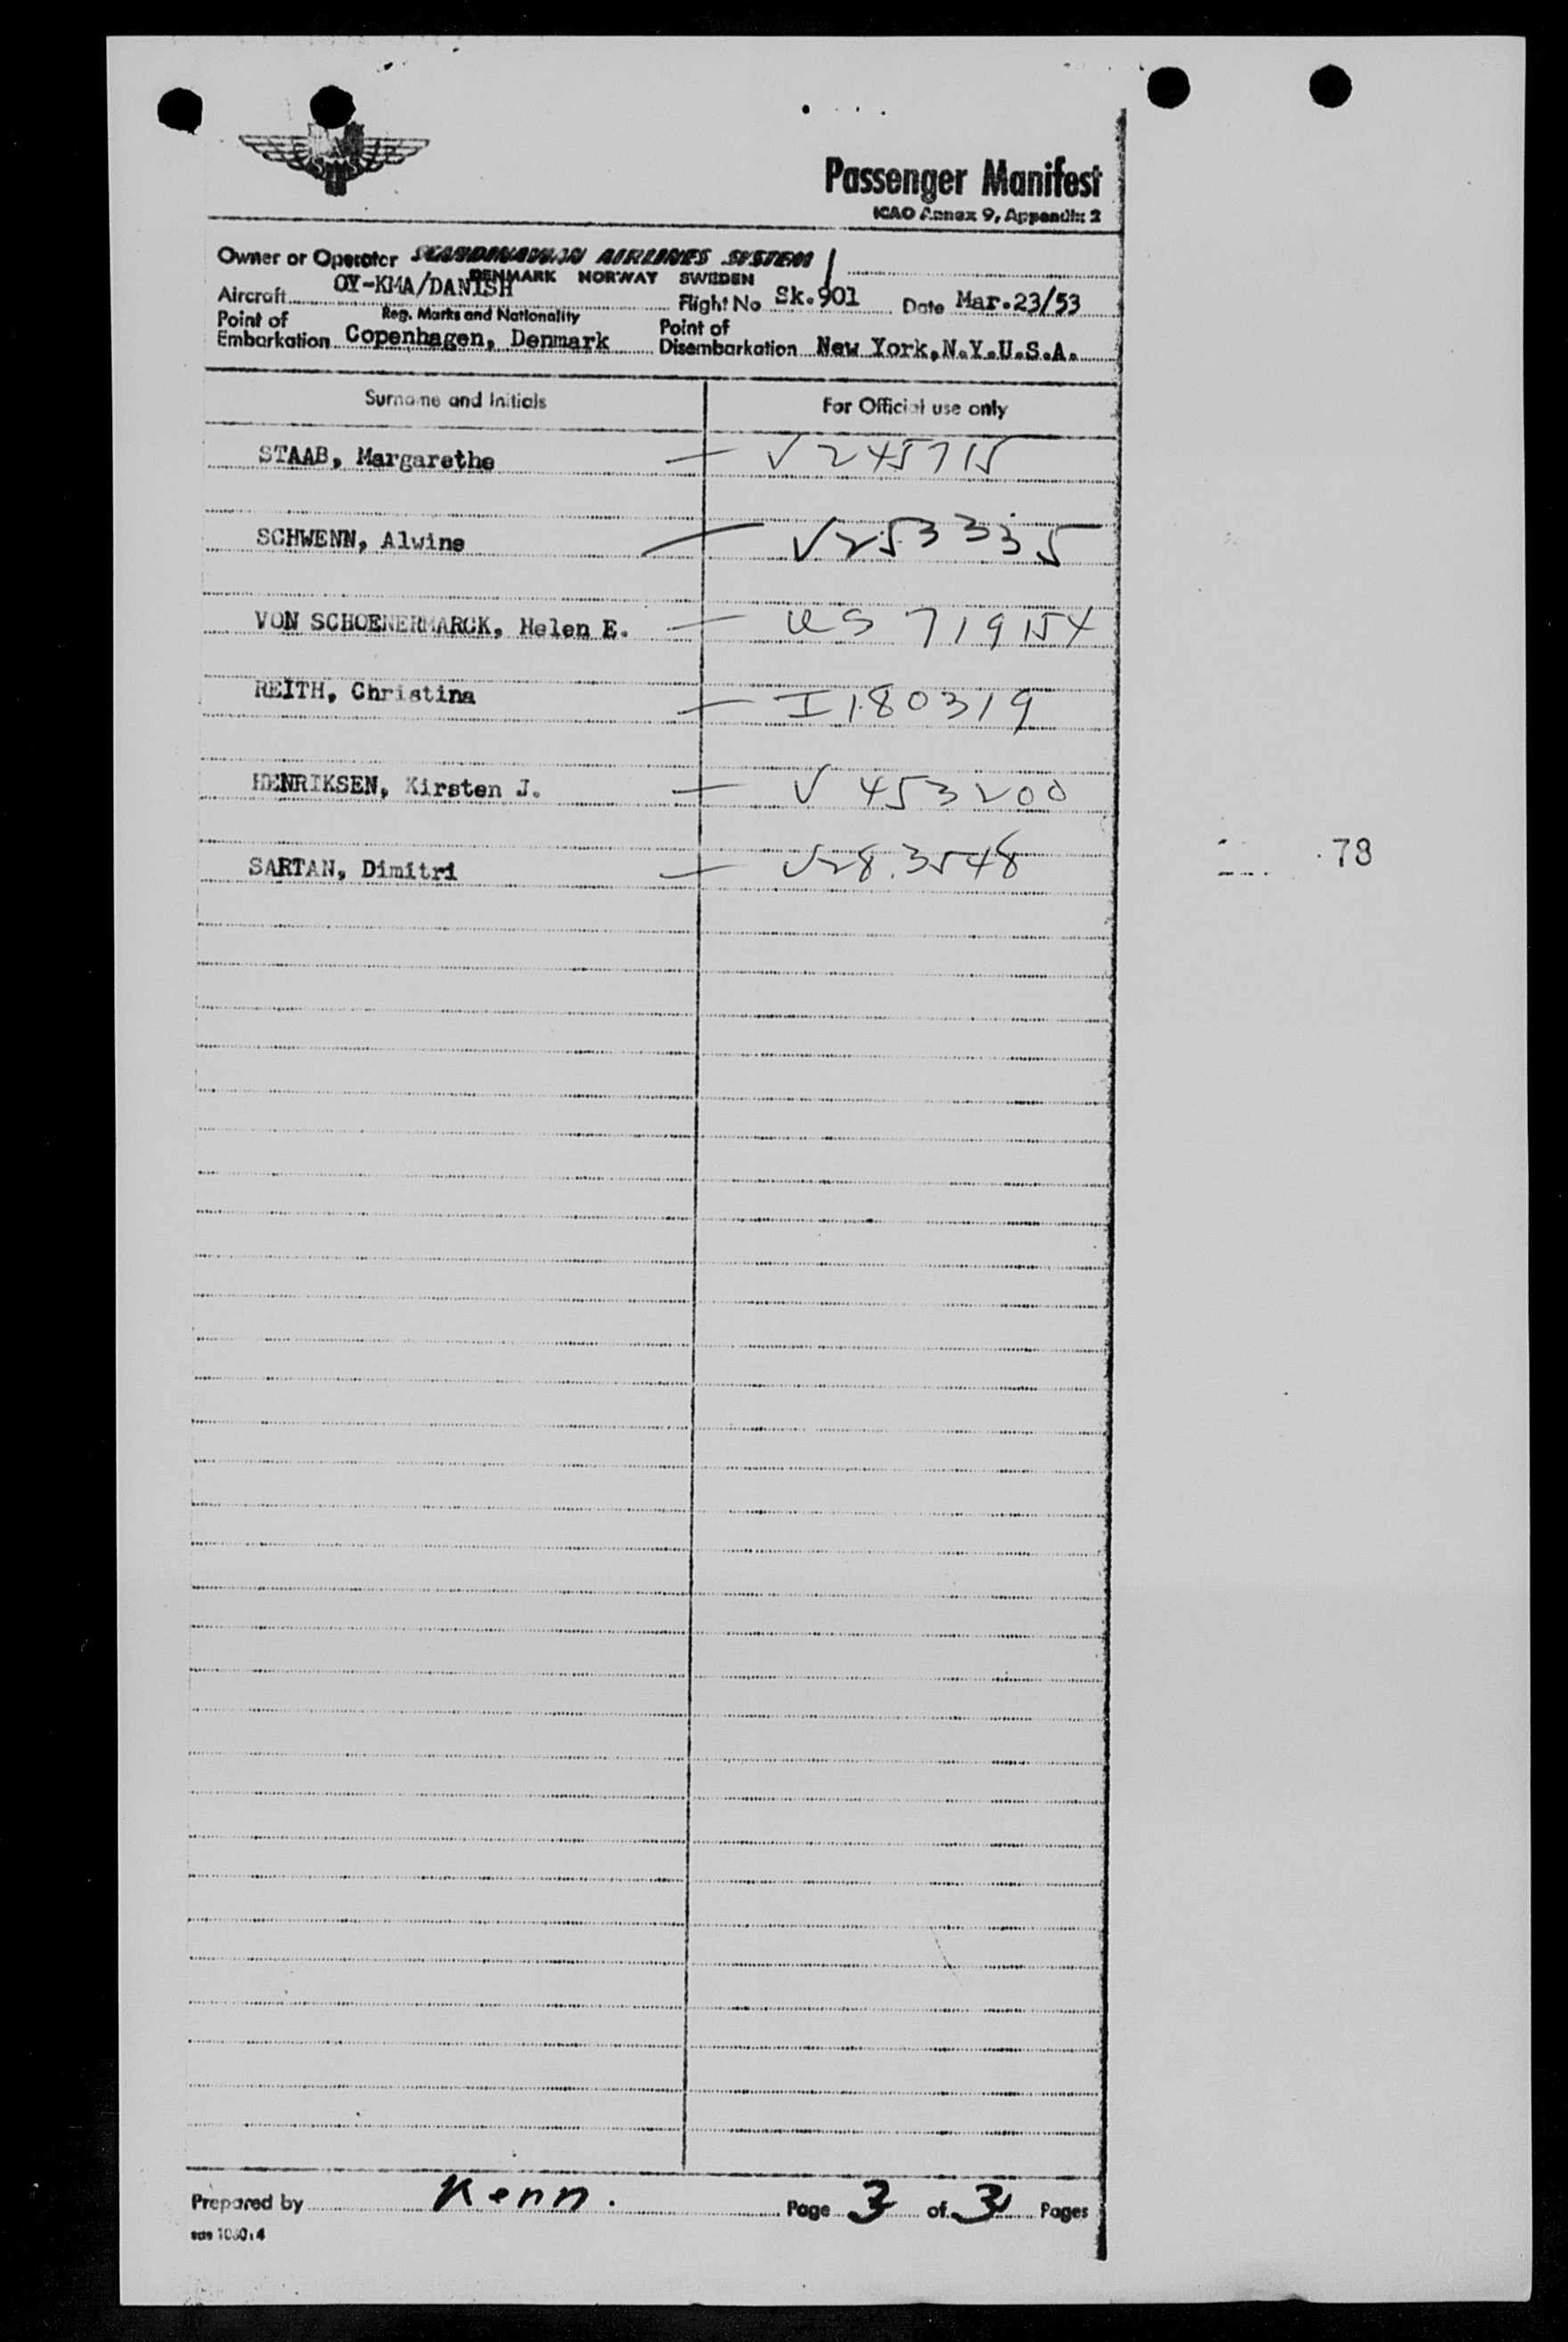 Passenger Manifest
ICAO Annex 9, Appendix 2
Owner or Operator SCANDINAVIAN AIRLINES SYSTEM
DENMARK NORWAY SWEDEN
Aircraft OY-KMA/DANISH Flight No Sk.901 Date Mar.23/53
Reg. Marks and Nationality
Point of Embarkation Copenhagen, Denmark Point of Disembarkation New York,N.Y.U.S.A.
Surname and Initials For Official use only
STAAB, Margarethe — V 245715
SCHWENN, Alwine — V253335
VON SCHOENERMARCK, Helen E. — US 719154
REITH, Christina — I180319
HENRIKSEN, Kirsten J. — V 453200
SARTAN, Dimitri — V28.3548
78
Prepared by Kenn. Page 3 of 3 Pages